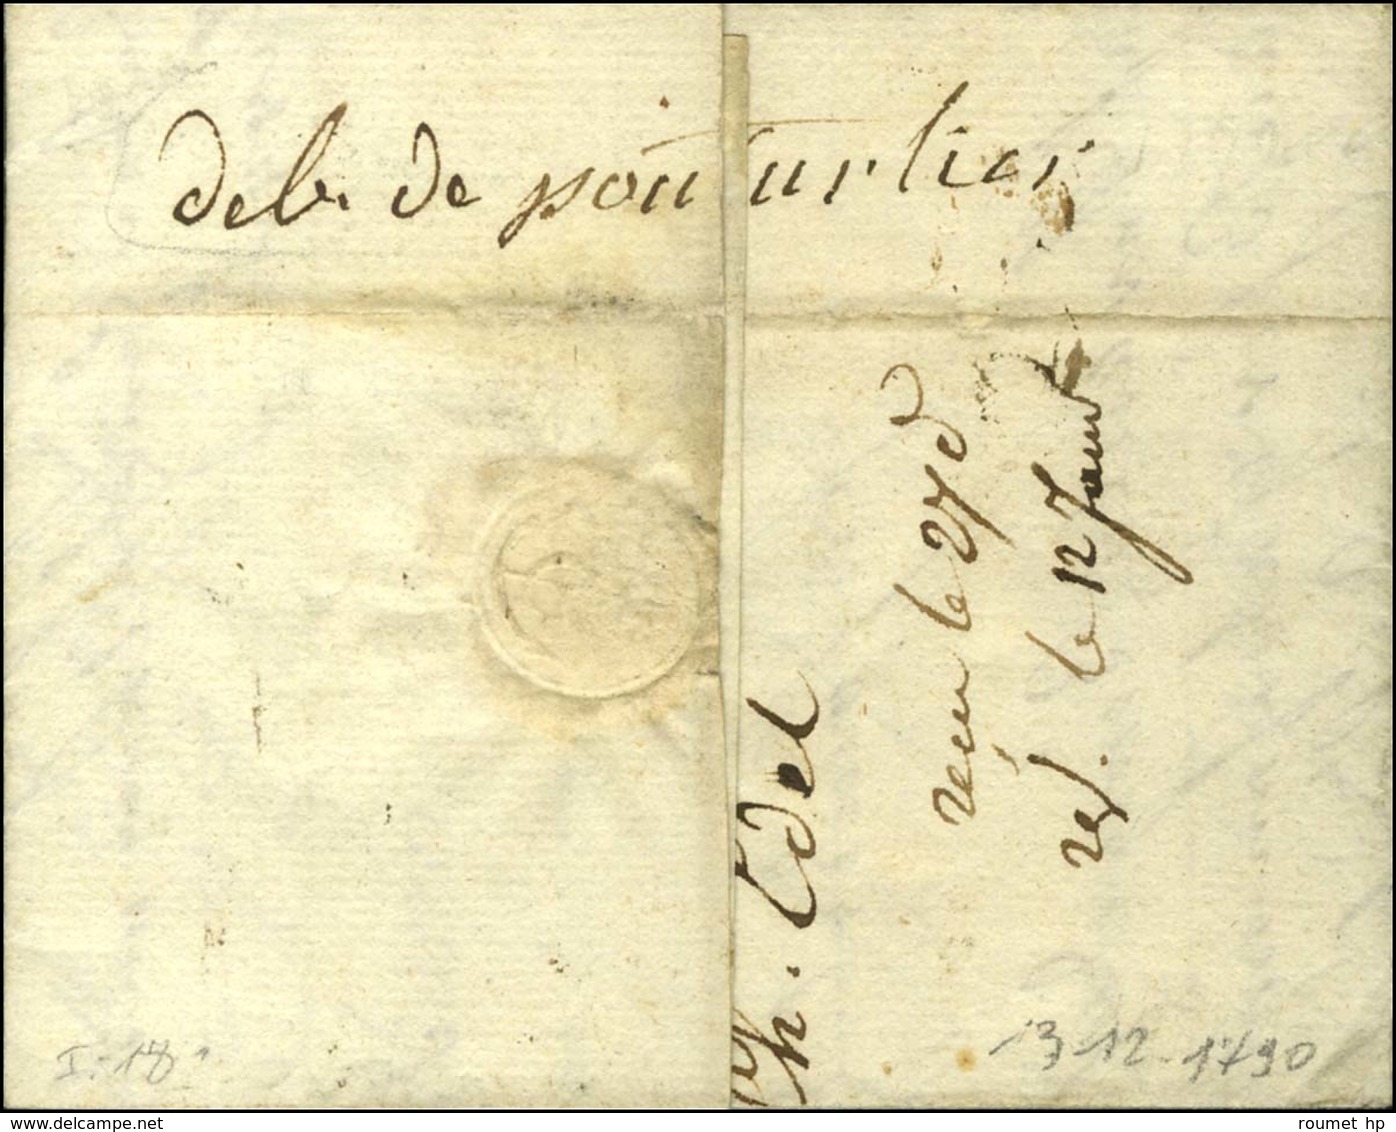 deb. de pontarlier
reçu le 27 d
rep. le 12 Janv
Ph. Edel
I. 18
13-12-1790
delcampe.net
roumet hp